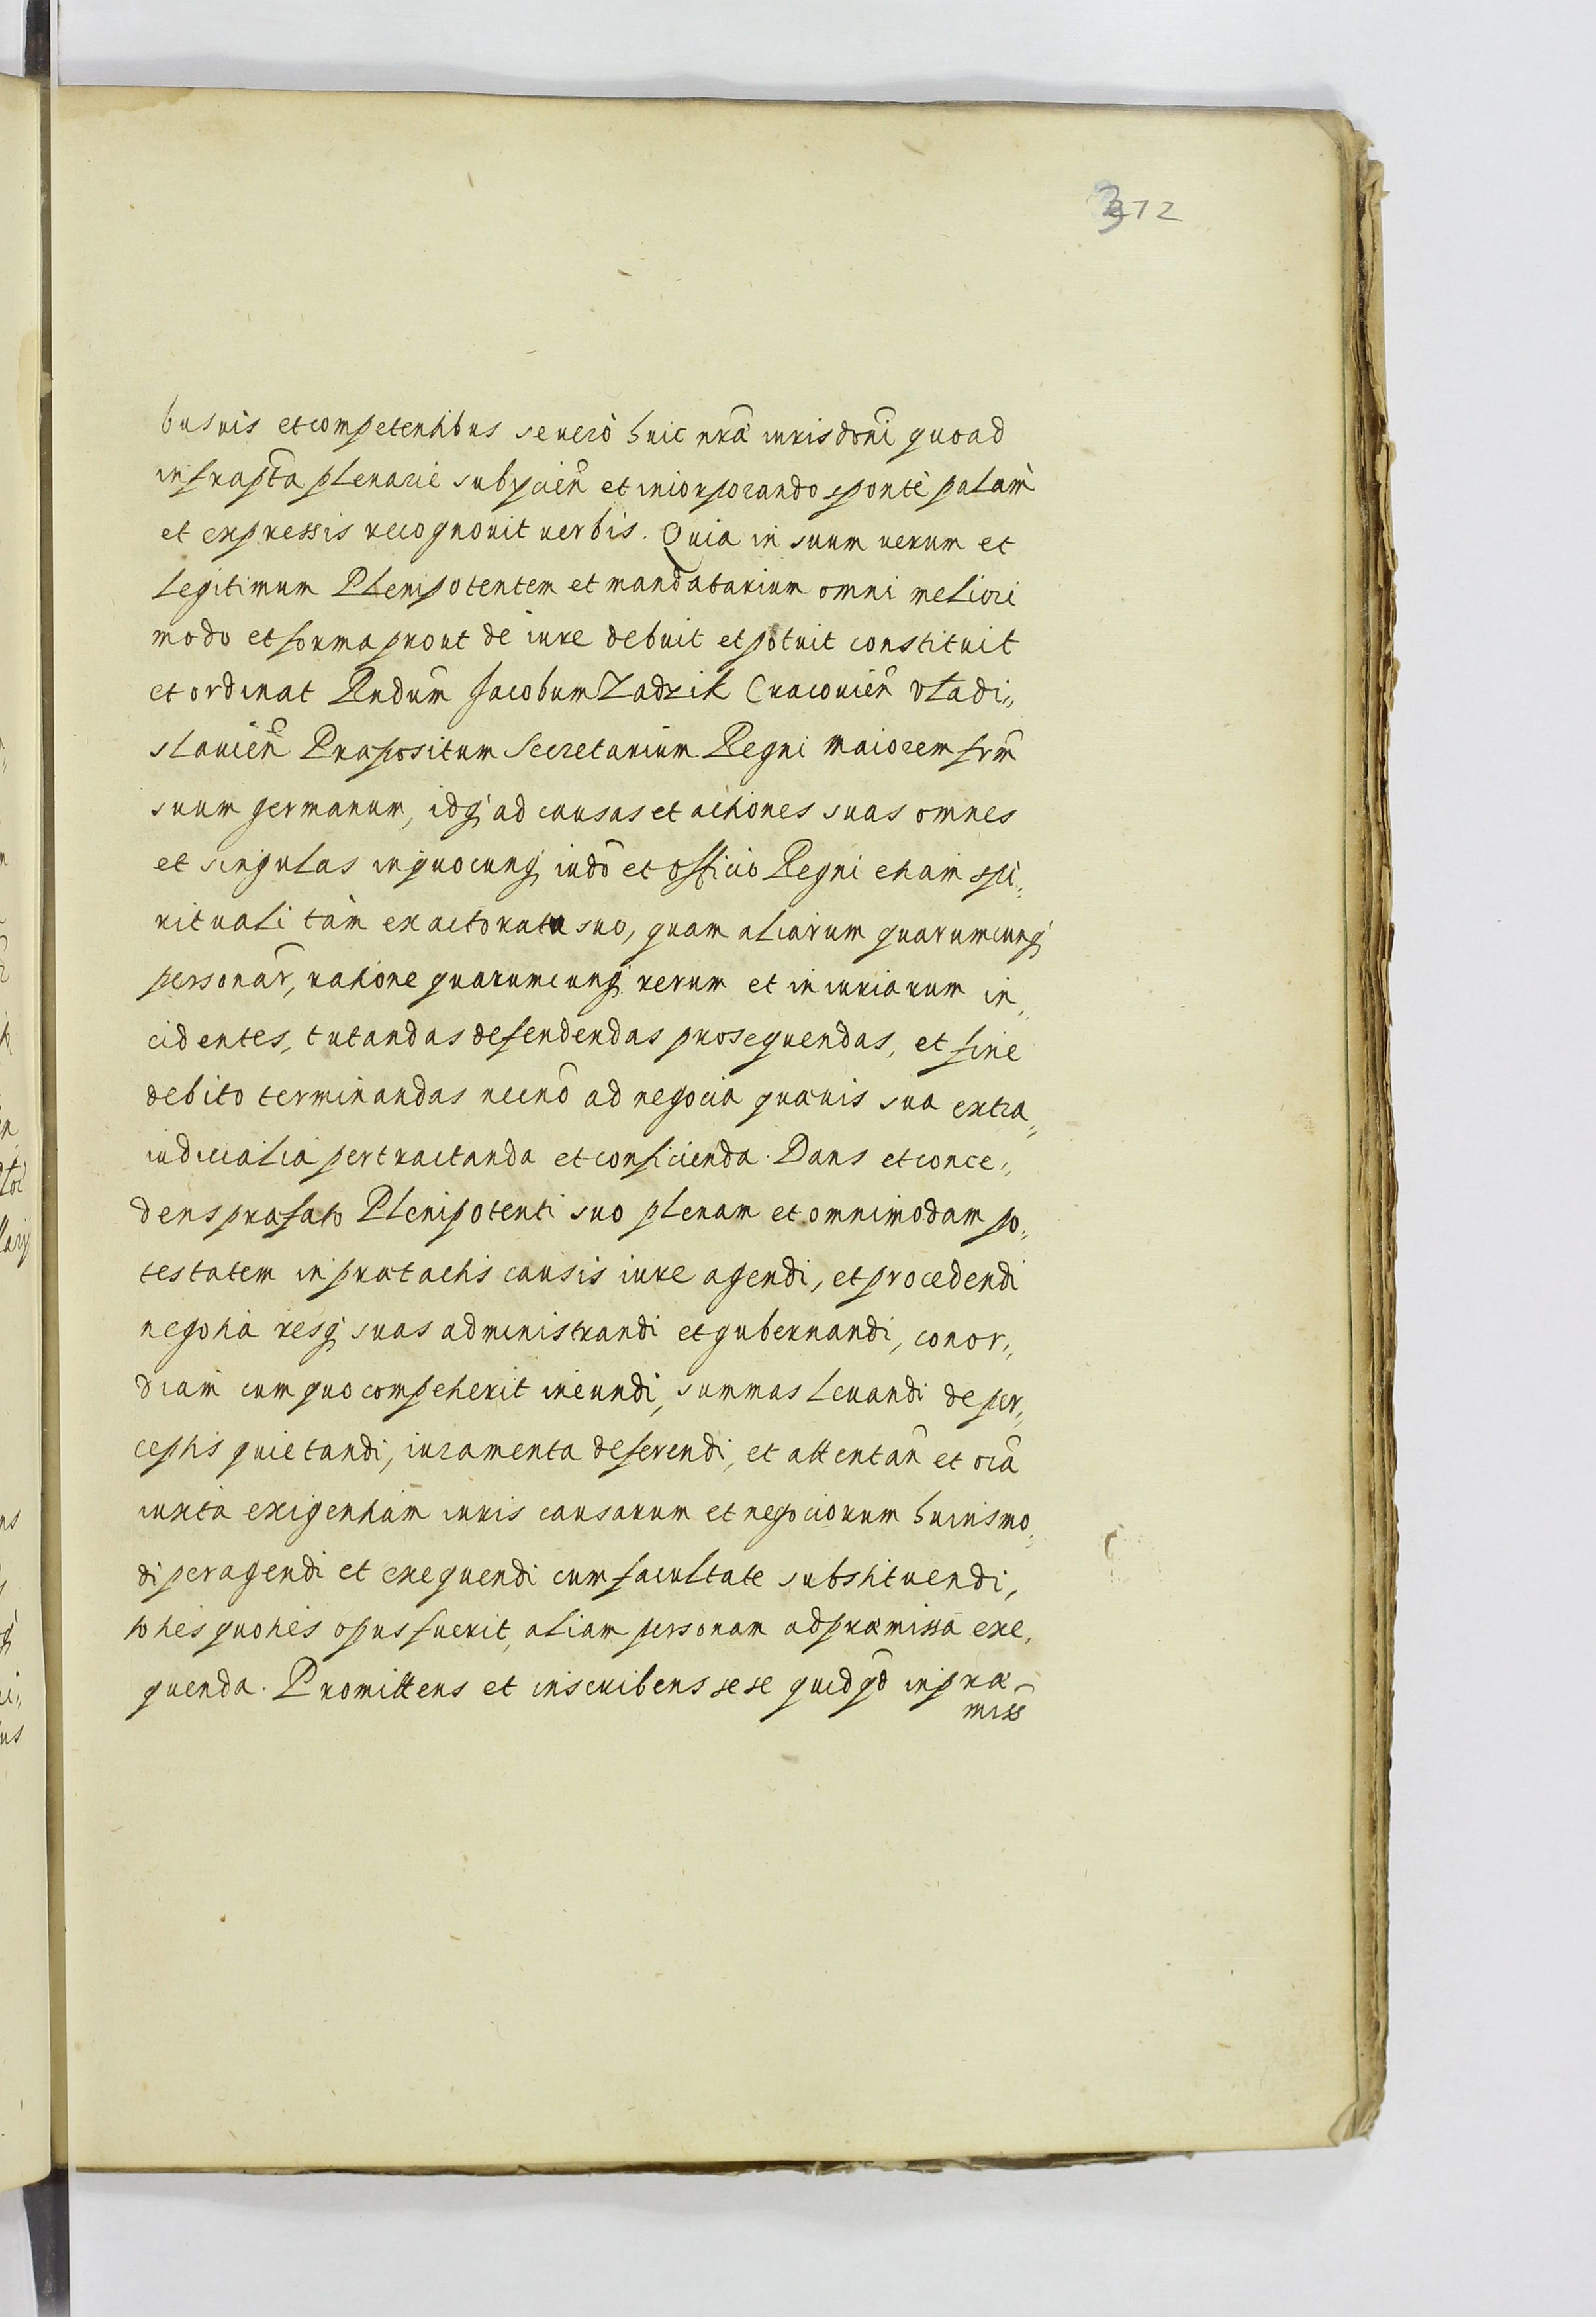 372
busuis et competentibus se uerò huic nrã iurisdoni quoad
infrapta plenarie subycien et incorporando sponte palàm
et expressis recognouit uerbis. Quia in suum uerum et
legitimum Plenipotentem et mandatarium omni meliori
modo et forma prout de iure debuit et potuit constituit
et ordinat Rndum Jacobum Zadzik Cracouien Vladi„
slauien Præpositum Secretarium Regni maiorem frm
suum germanum, idq ad causas et actiones suas omnes
et singulas in quocunq iudo et officio Regni etiam spi„
rituali tàm ex actoratu suo, quam aliarum quarumcunq
personar, ratione quarumcunq rerum et iniuriarum in„
cidentes, tutandas defendendas prosequendas, et fine
debito terminandas necno ad negocia quæuis sua extra„
iudicialia pertractanda et conficienda. Dans et conce„
dens præfato Plenipotenti suo plenam et omnimodam po„
testatem in prætactis causis iure agendi, et procedendi
negotia resq suas administrandi et gubernandi, concor„
diam cum quo competierit ineundi, summas leuandi de per„
ceptis quietandi, iuramenta deferendi, et attentan et oia
iuxta exigentiam iuris causarum et negociorum huiusmo„
di peragendi et exequendi cum facultate substituendi,
toties quoties opus fuerit, aliam personam ad præmissa exe„
quenda. Promittens et inscribens sese quidqd in præ-
miss